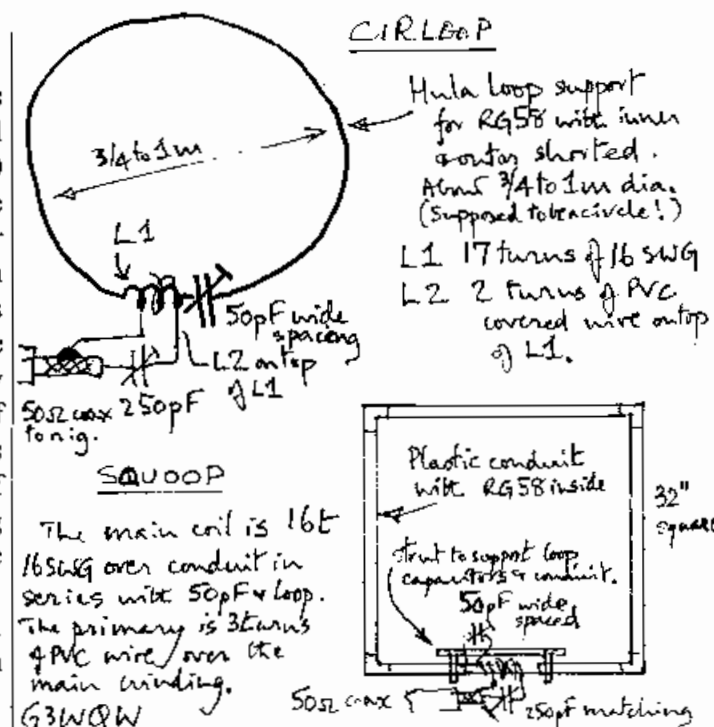 CIRLOOP
Hula loop support
for RG58 with inner
& outer shorted.
About 3/4 to 1m dia.
(Supposed to be a circle!)
L1 17 turns of 16 SWG
L2 2 turns of PVC
covered wire on top
of L1.
3/4 to 1m
L1
50pF wide
spacing
L2 on top
of L1
250pF
50Ω coax
to rig.
SQUOOP
The main coil is 16t
16SWG over conduit in
series with 50pF & loop.
The primary is 3 turns
of PVC wire over the
main winding.
G3WQW
Plastic conduit
with RG58 inside
32"
square
strut to support loop
capacitors & conduit.
50pF wide
spaced
50Ω coax
250pf matching